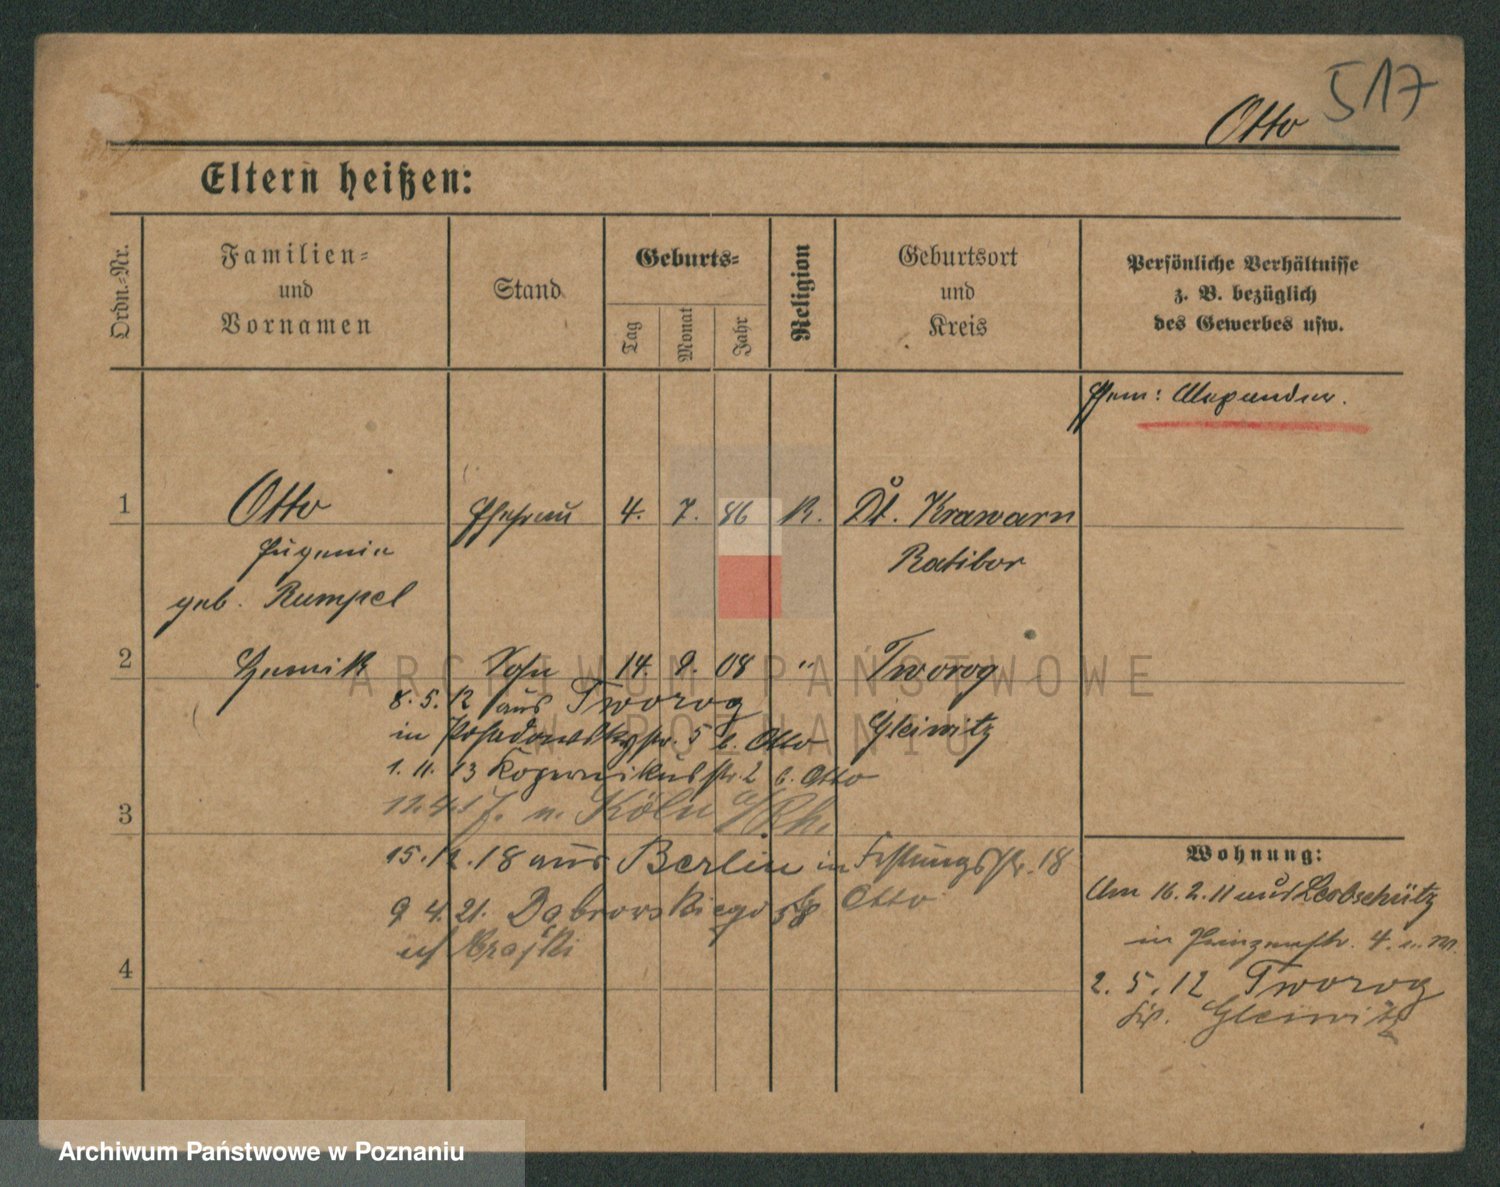 517
Otto
Eltern heißen:
Ordn.-Nr.
Familien-
und
Vornamen
Stand
Geburts-
Tag
Monat
Jahr
Religion
Geburtsort
und
Kreis
Persönliche Verhältnisse
z. B. bezüglich
des Gewerbes usw.
Ehem: Alexander.
1 Otto Ehefrau 4. 7. 86 K. Dt. Krawarn
Eugenie Ratibor
geb. Rumpel
2 Sohn 14. 9. 08 " Tworog
Gleiwitz
8. 5. 12 aus Tworog
in Posadowskystr. 5 b. Otto
1. 11. 13 Kopernikusstr. 2 b. Otto
n. Köln a/Rh.
3
15. 12. 18 aus Berlin in Festungsstr. 18
Otto
9 4. 21. Dąbrowskiego 58
4
Wohnung:
Am 16. 2. 11 aus Leobschütz
in Prinzenstr. 4.
2. 5. 12 Tworog
Gleiwitz
ARCHIWUM PAŃSTWOWE
W POZNANIU
Archiwum Państwowe w Poznaniu